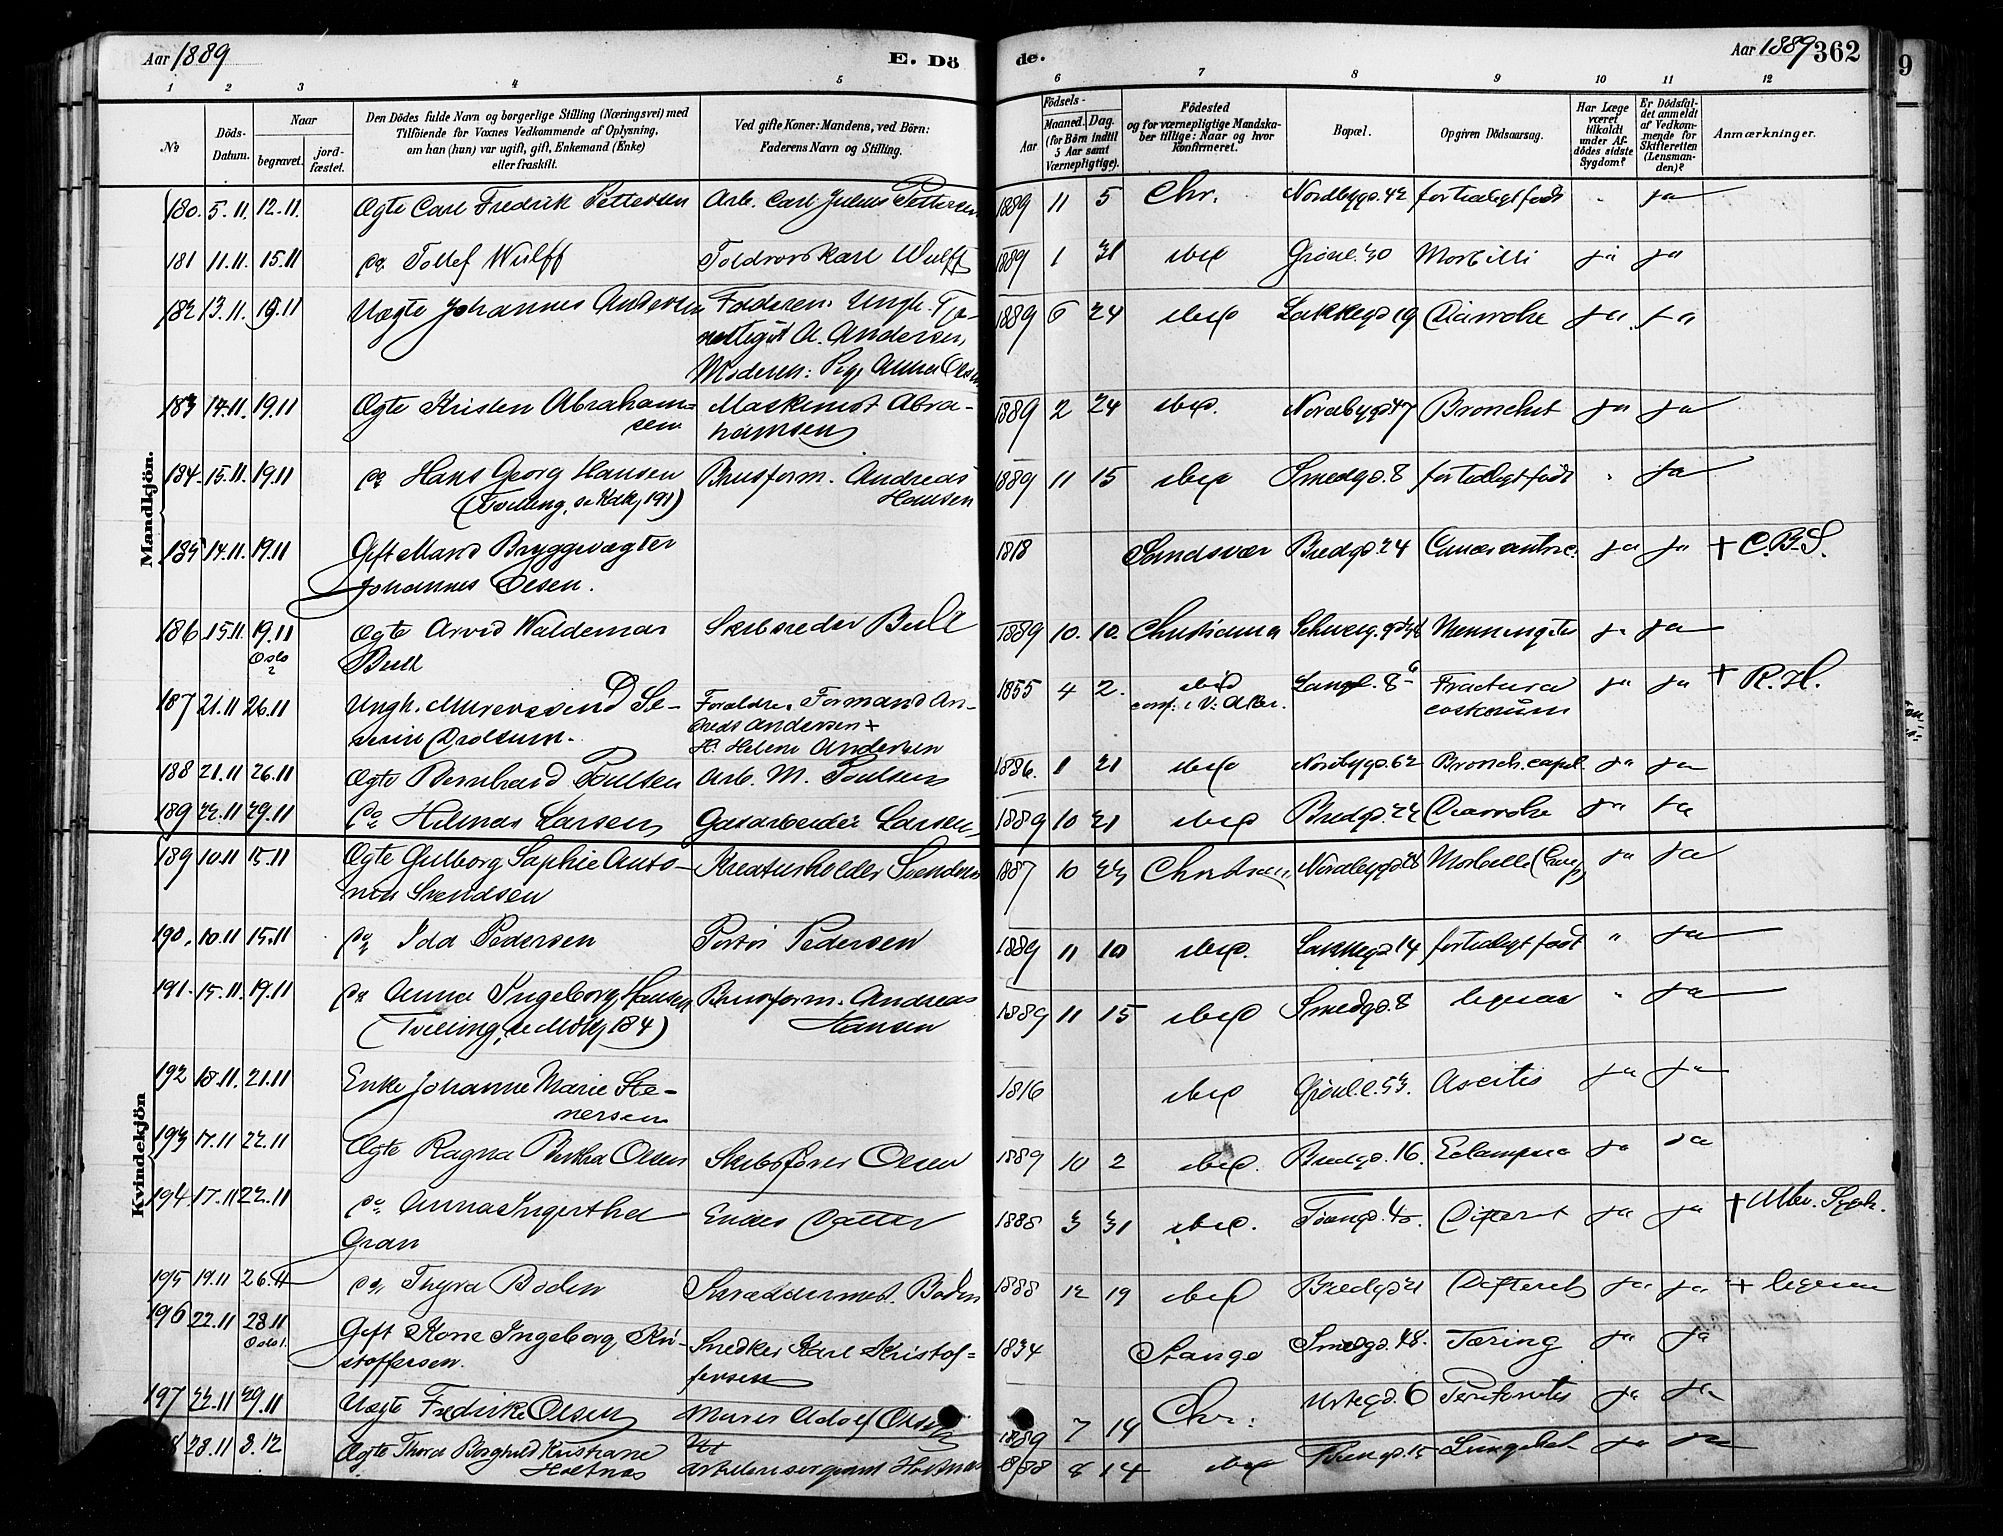 Aar 1889
E. Dö
de.
Aar 1889 362
9
1 2 3 4 5 6 7 8 9 10 11 12
No
Döds-
Datum.
Naar
begravet.
jord-
fæstet.
Den Dödes fulde Navn og borgerlige Stilling (Næringsvei) med
Tilföiende for Voxnes Vedkommende af Oplysning,
om han (hun) var ugift, gift, Enkemand (Enke)
eller fraskilt.
Ved gifte Koner: Mandens, ved Börn:
Faderens Navn og Stilling.
Födsels-
Aar
Maaned. Dag.
(for Börn indtil
5 Aar samt
Værnepligtige).
Födested
og for værnepligtige Mandska-
ber tillige: Naar og hvor
konfirmeret.
Bopæl.
Opgiven Dödsaarsag.
Har Læge
været
tilkaldt
under Af-
dödes sidste
Sygdom?
Er Dödsfal-
det anmeldt
af Vedkom-
mende for
Skifteretten
(Lensman-
den)?
Anmærkninger.
Mandkjön.
180. 5.11. 12.11. Ægte Carl Fredrik Pettersen Arb. Carl Julius Pettersen 1889 11 5 Chr. Nordbygd. 42 for tidligt født " ja
181 11.11. 15.11 do Tollef Wulff Toldrorskarl Wulff 1889 1 31 ibid Grønl. 30 Morbilli ja ja
182 13.11. 19.11 Uægte Johannes Andersen Faderen: Ungk. Tje-
nestegut A. Andersen,
Moderen: Pige Anna Olsen
1889 6 24 ibid Lakkegd 19 Diarrohe ja ja
183 14.11. 19.11 Ægte Kristen Abraham-
sen
Maskinist Abra-
hamsen
1889 2 24 ibid. Nordbygd 47 Bronchit ja ja
184. 15.11. 19.11 do Hans Georg Hansen
(Tvilling, se Kdkj 191)
Brusform. Andreas
Hansen
1889 11 15 ibid Smedgd. 8 for tidligt født " ja
185 14.11. 19.11 Gift Mand Bryggevægter
Johannes Olsen.
1818 Sandsvær Bredgd. 24 ja ja + C.B.S.
186 15.11. 19.11
Oslo
Ægte Arvid Waldemar
Bull
Skibsreder Bull
1889 10. 10. Christiania Meningitis ja ja
187 21.11 26.11 Ungk. Murersvend Se-
verin
Forældre, Formand An-
dreas Andersen +
H. Helene Andersen
1855 4 2. ibid
conf. i V: Aker.
Langl. 8 Fractura
costarum
ja ja + R.H.
188 21.11 26.11 Ægte Bernhard Poulsen Arb. M. Poulsen 1886. 1 21 ibid Nordbygd. 62 Bronch. capil. ja ja
189 22.11 29.11 do Hilmar Larsen Gasarbeider Larsen 1889 10 21 ibid Bredgd. 22 Diarrohe ja ja
Kvindekjön
189 10.11 15.11 Ægte Gulborg Sophie Anto-
nia Svendsen
Kreaturholder Svendsen
1887 10 23 Christiania Nordbygd 28 Morbilli ja ja
190. 10.11 15.11 do Ida Pedersen Portør Pedersen 1889 11 10 ibid. Lakkegd 14 for tidligt født " ja
191. 15.11. 19.11 do Anna Ingeborg Hansen
(Tvilling, se Mdkj 184)
Brusform. Andreas
Hansen
1889 11 15 ibid Smedgd. 8 ligesaa " ja
192 18.11. 21.11 Enke Johanne Marie Ste-
nersen
1816 ibid Grønl.l. 53. Ascites ja ja
193 17.11 22.11 Ægte Ragna Bertha Olsen Skibsfører Olsen 1889 10 2 ibid. Bredgd. 16. Eclampsia ja ja
194 17.11 22.11 do Anna Ingertha
Gran
Enkes Datter
1888 3 31 ibid. Difterit ja ja +
195 19.11 26.11 do Thyra Boden Skræddermest. Boden 1888 12 19 ibid Bredgd 21 Difterit ja ja + ligesaa
196 22.11 28.11 Gift Kone Ingeborg Kri-
stoffersen.
Snedker Karl Kristof-
fersen
1834 Stange Smedgd. 48. Tæring ja ja
197 22.11 29.11 Uægte Fredrikke Olsen Murer Adolf Olsen 1889 7 14 Chr. Urtegd. 6 Peritonitis ja ja
28.11 3.12 Ægte Thora Borghild Kristiane
Holtnæs
Artillerisergeant Holtnæs
1888 8 14 ibid ja ja